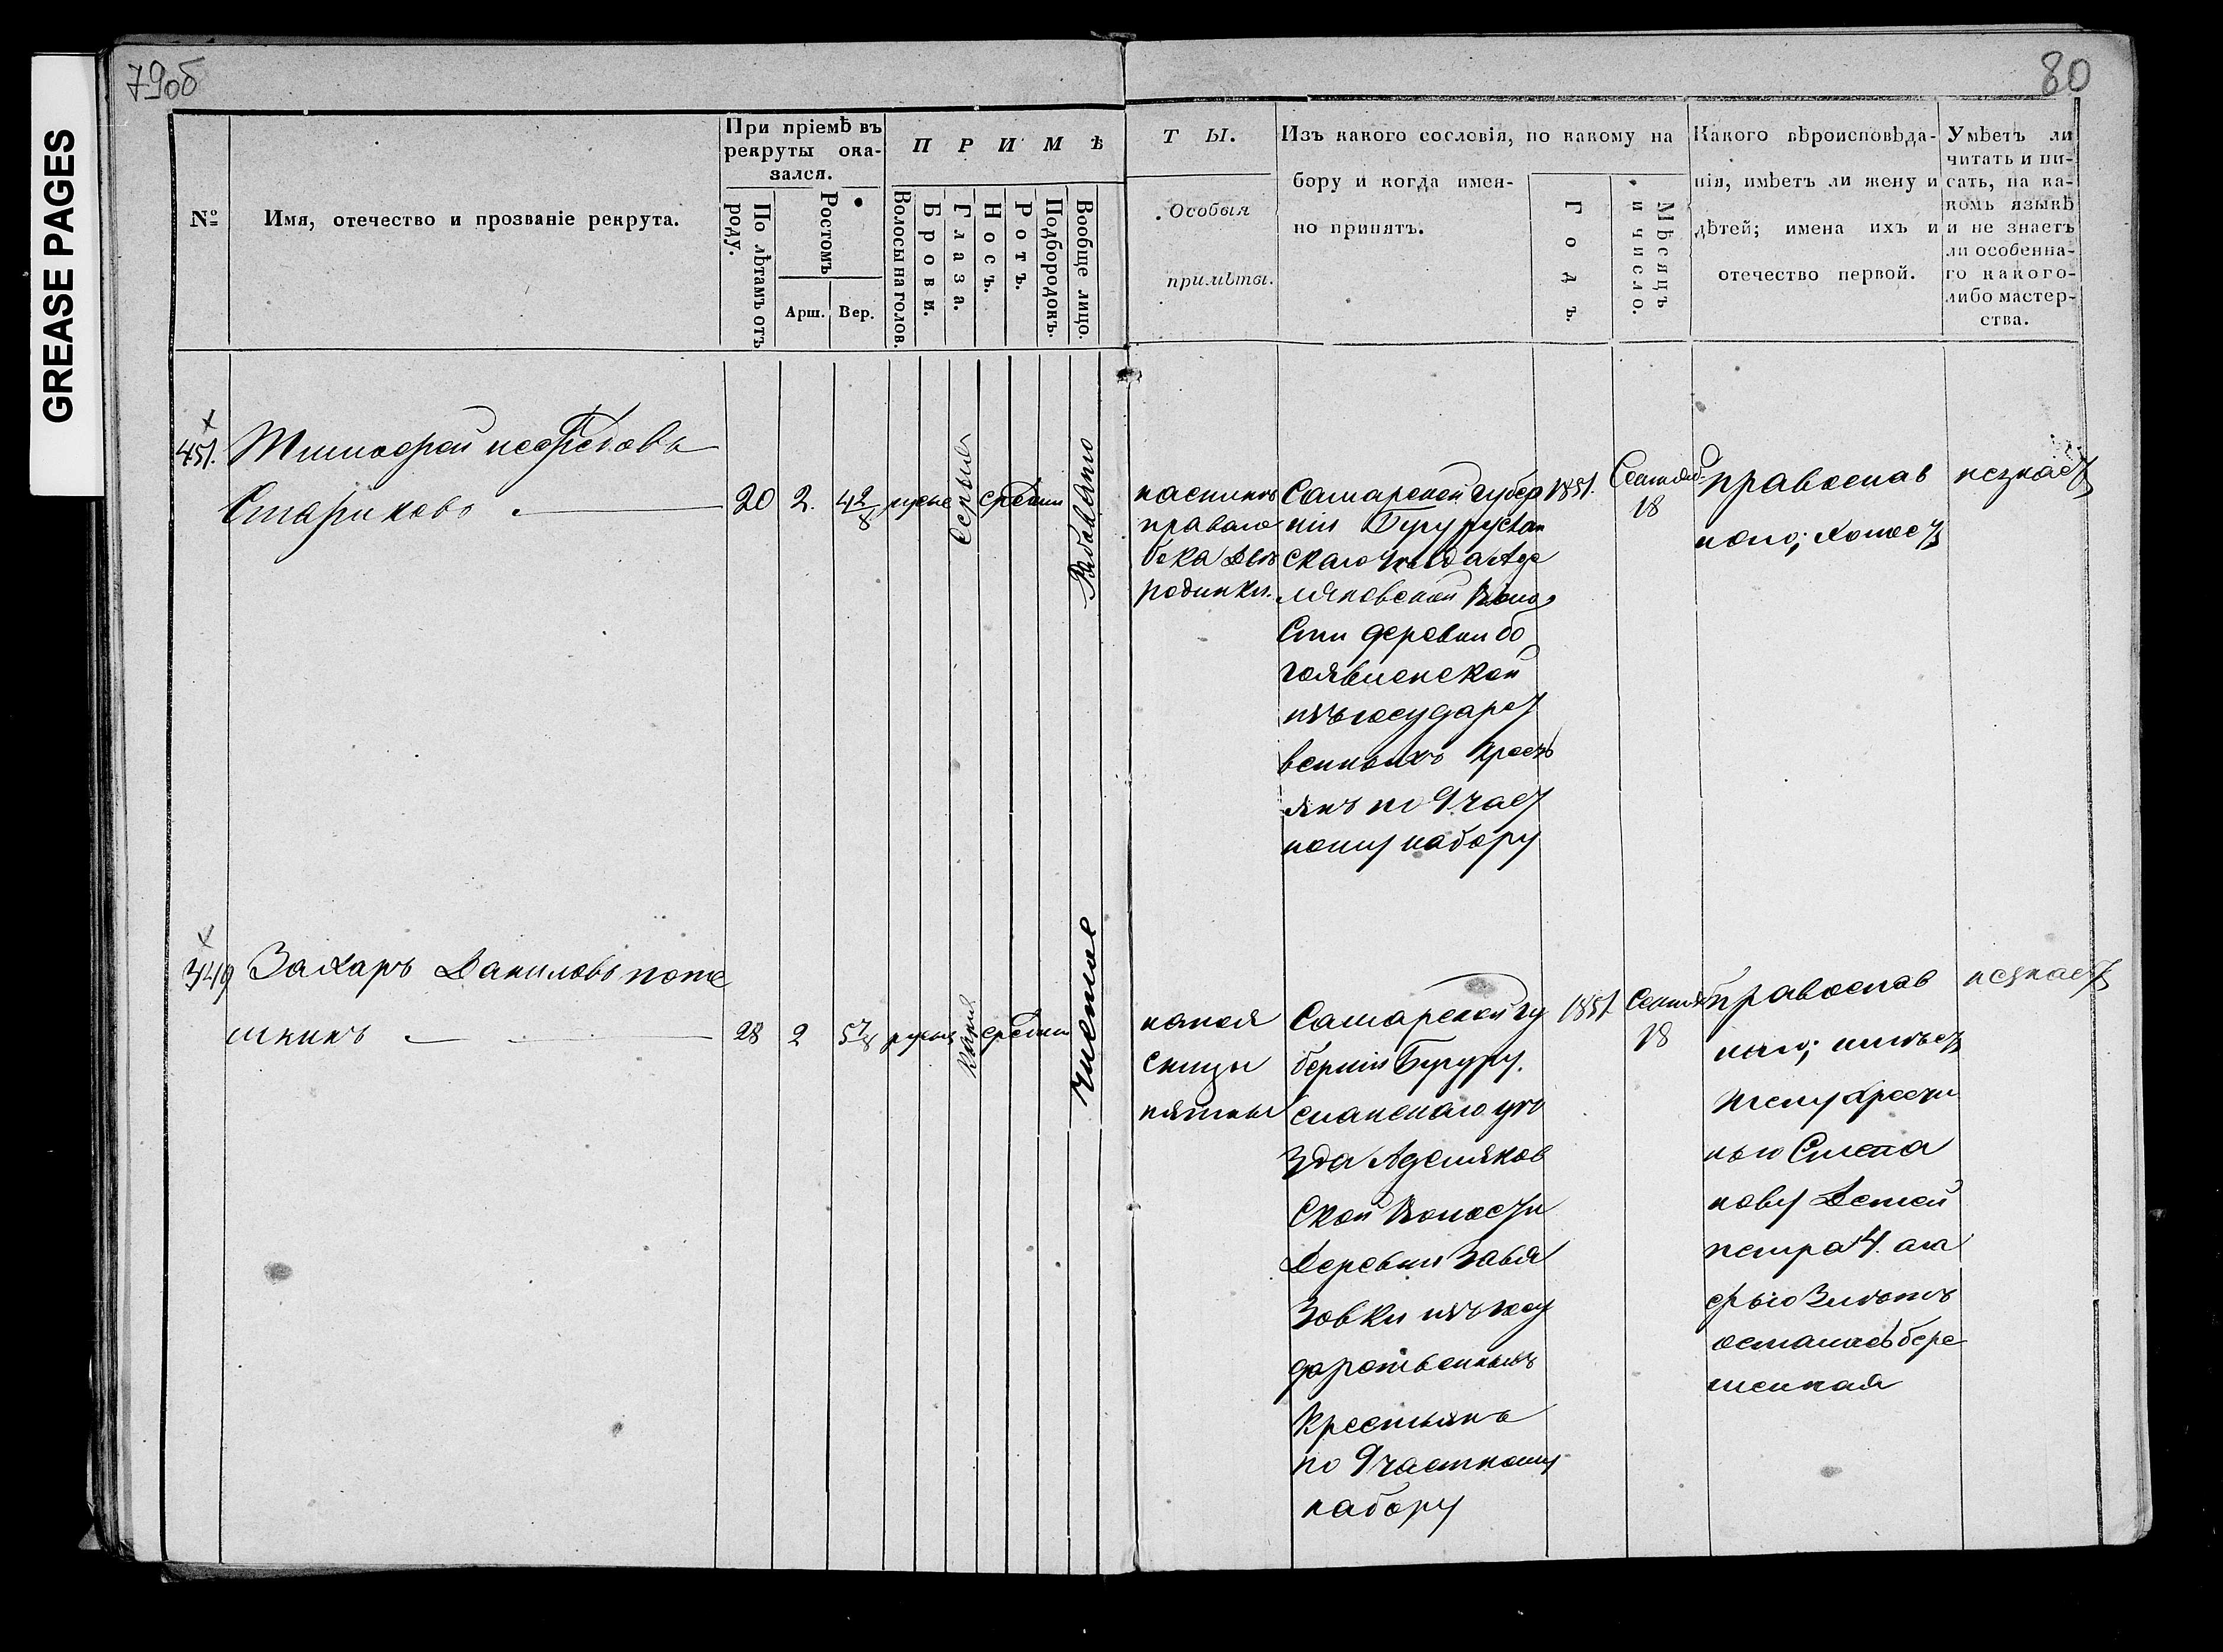 GREASE PAGES
79об
80
№
Имя, отечество и прозваніе рекрута.
При пріемѣ въ
рекруты ока-
зался.
По лѣтамъ отъ
роду.
Ростомъ
Арш.
Вер.
ПРИМѢ
Волосы на голов.
Брови.
Глаза.
Носъ.
Ротъ.
Подбородокъ.
Вообще лицо.
ТЫ.
Особыя
примѣты.
Изъ какого сословія, по какому на
бору и когда имен-
но принятъ.
Годъ.
Мѣсяцъ
и число.
Какого вѣроисповѣда-
нія, имѣетъ ли жену и
дѣтей; имена ихъ и
отечество первой.
Умѣетъ ли
читать и пи-
сать, на ка-
комъ языкѣ
и не знаетъ
ли особенна-
го какого-
либо мастер-
ства.
451.
Тимофей
Стариковъ
20
2.
4 2/8
русые
серыя
средни
Рябоватo
правого
бока две
родинки.
Самарской губер
ніи Бугуруслан
скаго уѣзда Аде
ляковской Воло
сти деревни бо
гоявленской
изъ государст
венныхъ крест
янъ по 9 част
ному набору
1851.
18
православ
ного; холост
незнает
349
Захаръ Даниловъ поте
шкинъ
28
2
5 7/8
русыя
кария
средни
Чистое
Самарской гу
берніи Бугуру.
сланскаго уѣ
зда Аделяков
ской Волости
Деревни Завья
зовки изъ госу
дарственныхъ
Крестьянъ
по 9 частному
набору
1851
18
православ
ного; имѣет
жену
Степа
нову Детей
петра 4.
осталась бере
менная
незнает